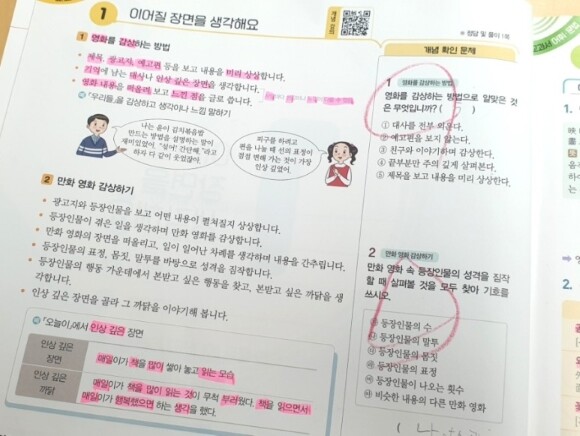 1 이어질 장면을 생각해요
개념 강의
※ 정답 및 풀이 1쪽
1 영화를 감상하는 방법
• 제목, 광고지, 예고편 등을 보고 내용을 미리 상상합니다.
• 기억에 남는 대사나 인상 깊은 장면을 생각합니다.
• 영화 내용을 떠올려 보고 느낀 점을 글로 씁니다.
예 「우리들」을 감상하고 생각이나 느낌 말하기
나는 윤이 김치볶음밥
만드는 방법을 설명하는 말이
재미있었어.
하자 다 같이 웃었잖아.
피구를 하려고
편을 나눌 때 선의 표정이
점점 변해 가는 것이 가장
인상 깊었어.
2 만화 영화 감상하기
• 광고지와 등장인물을 보고 어떤 내용이 펼쳐질지 상상합니다.
• 등장인물이 겪은 일을 생각하며 만화 영화를 감상합니다.
• 만화 영화의 장면을 떠올리고, 일이 일어난 차례를 생각하며 내용을 간추립니다.
• 등장인물의 표정, 몸짓, 말투를 바탕으로 성격을 짐작합니다.
• 등장인물의 행동 가운데에서 본받고 싶은 행동을 찾고, 본받고 싶은 까닭을 생
각합니다.
• 인상 깊은 장면을 골라 그 까닭을 이야기해 봅니다.
예 「오늘이」에서 인상 깊은 장면
인상 깊은
장면
매일이가 책을 많이 쌓아 놓고 읽는 모습
인상 깊은
까닭
매일이가 책을 많이 읽는 것이 무척 부러웠다. 책을 읽으면서
매일이가 행복했으면 하는 생각을 했다.
개념 확인 문제
1 영화를 감상하는 방법
영화를 감상하는 방법으로 알맞은 것
은 무엇입니까? ( )
① 대사를 전부 외운다.
② 예고편을 보지 않는다.
③ 친구와 이야기하며 감상한다.
④ 끝부분만 주의 깊게 살펴본다.
⑤ 제목을 보고 내용을 미리 상상한다.
2 만화 영화 감상하기
만화 영화 속 등장인물의 성격을 짐작
할 때 살펴볼 것을 모두 찾아 기호를
쓰시오.
㉮ 등장인물의 수
㉯ 등장인물의 말투
㉰ 등장인물의 몸짓
㉱ 등장인물의 표정
㉲ 등장인물이 나오는 횟수
㉳ 비슷한 내용의 다른 만화 영화